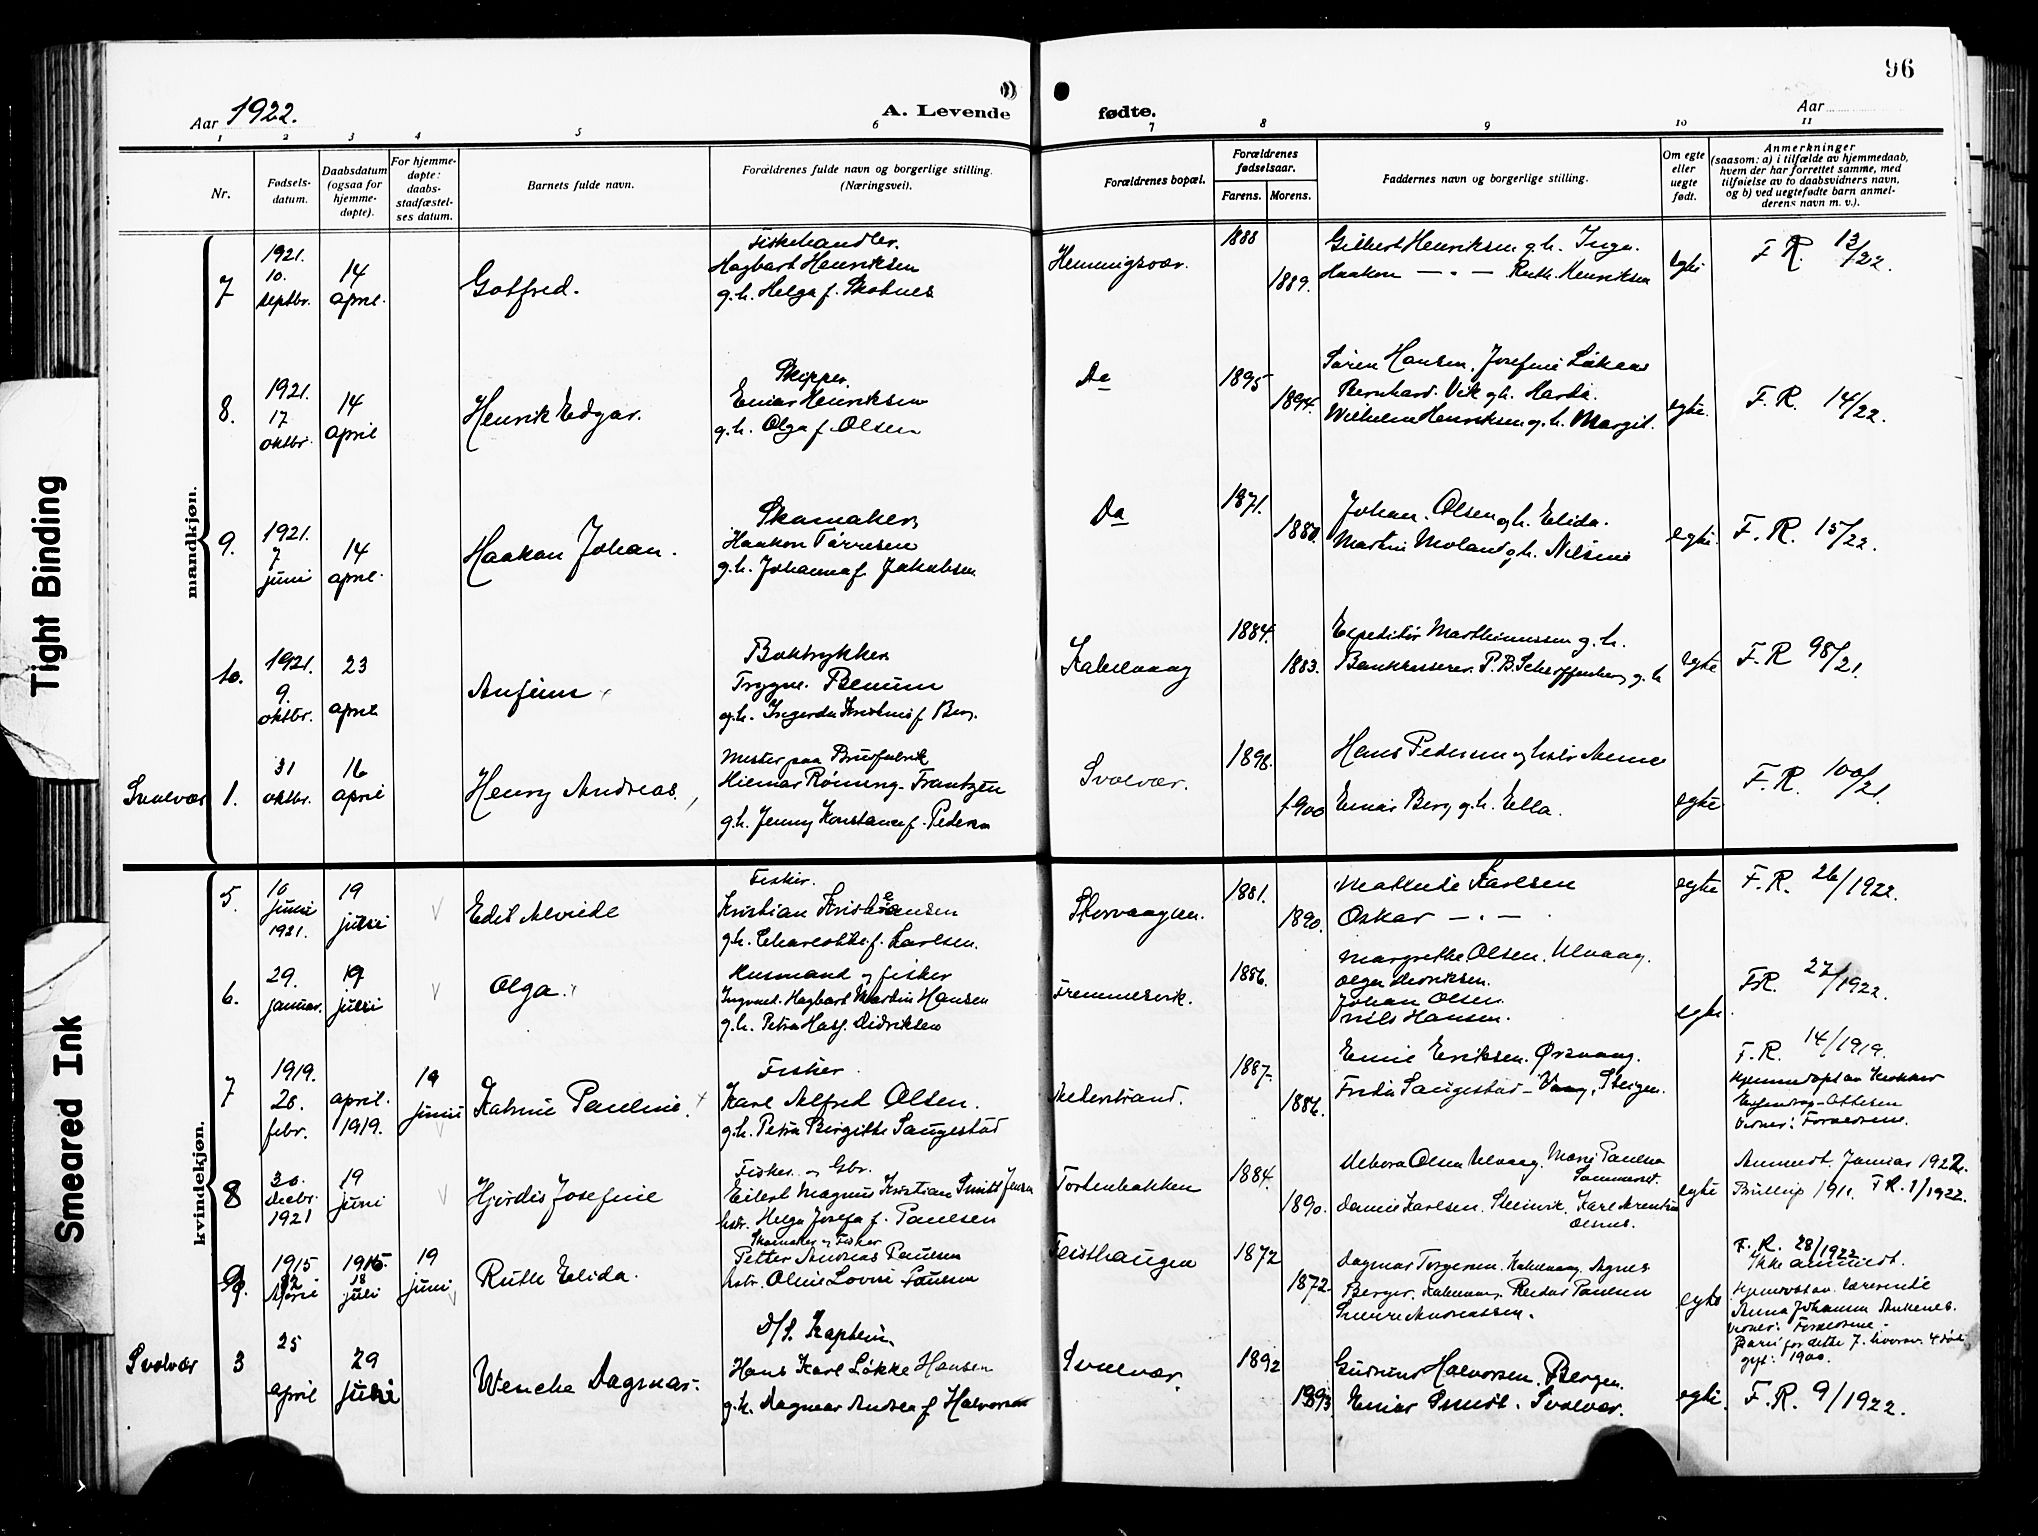 96
Aar 1922.
A. Levende
fødte.
Aar
1 2 3 4 5 6 7 8 9 10 11
Nr.
Fødsels-
datum.
Daabsdatum
(ogsaa for
hjemme-
døpte).
For hjemme-
døpte:
daabs-
stadfæstel-
ses datum.
Barnets fulde navn.
Forældrenes fulde navn og borgerlige stilling.
(Næringsvei).
Forældrenes bopæl.
Forældrenes
fødselsaar.
Farens. Morens.
Faddernes navn og borgerlige stilling.
Om egte
eller
uegte
født.
Anmerkninger
(saasom: a) i tilfælde av hjemmedaab,
hvem der har forrettet samme, med
tilføielse av to daabsvidners navn,
og b) ved uegtefødte barn anmel-
derens navn m. v.).
mandkjøn.
7
1921.
10.
septbr.
14
april.
Gotfred.
Fiskehandler.
Hagbart Henriksen
g.h. Helga f. Skotnes
Henningsvær.
1888
1889.
Gilbert Henriksen g.h. Inga.
Haakon — " — Ruth Henriksen
egte
F. R. 13/22.
8.
1921.
17
oktbr.
14
april
Henrik Edgar.
Skipper.
Einar Henriksen
g.h. Olga f. Olsen
Do
1895
1894.
Søren Hansen, Josefine
Bernhard Vik g.h.
Wilhelm Henriksen g.h. Margit.
egte.
F. R. 14/22.
9.
1921.
7
juni
14
april.
Haakon Johan.
Skomaker
Haakon Tørresen
g.h. Johanna f. Jakobsen
Do
1871.
1880.
Johan Olsen g.h. Elida.
Martin Moland g.h. Nilsine
egte.
F. R. 15/22.
10.
1921.
9.
oktbr.
23
april
Anfinn
Boktrykker
Trygve
g.h. Ingerda f. Berg.
Kabelvaag
1884.
1883.
Expeditør Marthinussen g.h.
Bankkasserer P. B. Scharffenberg g.h
egte
F. R 98/21.
Svolvær 1.
31
oktbr.
16
april
Henry Andreas.
Mester paa Brusfabrik
Hilmar Røning Frantzen
g.h. Jenny Konstance f. Pedersen
Svolvær.
1898.
1900
Hans Pedersen og Anna
Einar Berg g.h. Ella.
egte
F. R. 100/21.
kvindekjøn.
5.
10
juni
1921.
19
juni
Edit Alvilde
Fisker.
Kristian Kristiansen
g.h. Charlotte f. Karlsen.
Storvaagen.
1881.
1890.
Mathilde Karlsen
Oskar — " —
egte
F. R. 26/1922.
6.
29.
januar.
19
juni
Olga.
Husmand og fisker
Ingvald Hagbart Martin Hansen
g.h. Petra f. Didriksen
Fremmesvik.
1886.
Margrethe Olsen, Ulvaag.
Olga
Johan Olsen.
Nils Hansen.
egte.
F.R. 27/1922.
7
1919.
28.
febr.
april.
1919.
19
juni
Katrine Pauline.
Fisker.
Karl Alfred Olsen.
g.h. Petra Birgitte Saugestad
1887.
1886.
Emil Eriksen. Ørsvaag.
Frida Saugestad — Steigen.
F. R. 14/1919.
8
30.
decbr.
1921
19
juni
Hjørdis Josefine
Fisker og Gbr.
Eilert Magnus Kristian Smith Jensen
hstr. Helga Josefa f. Paulsen
Tortenbakken
1884.
1890.
Debora Olsen Ulvaag. Marie Paulsen
Danie Karlsen,
egte
Anmeldt Januar 1922.
Bryllup 1911. F.R. 1/1922.
9.
1915
1915.
18
juli
19
juni
Ruth Elida.
Skomaker og Fisker
Petter Andreas Paulsen
hstr. Oline Lovise Paulsen
1872
1872.
Dagmar Torgersen. Kabelvaag, Agnes
Berger. Kabelvaag, Reidar Paulsen
egte
F. R. 28/1922
Ikke anmeldt.
Anna Johanna
Forældrene.
gift: 1900.
Svolvær 3
25
april
29
juni
Wenche Dagmar.
D/S. Kaptein.
Hans Karl Løkke Hansen
g.h. Dagmar Andrea f. Halvorsen
Svolvær.
1892
1893.
Gudrun Halvorsen. Bergen.
Einar Smidt. Svolvær.
egte.
F. R. 9/1922.
Tight Binding
Smeared Ink